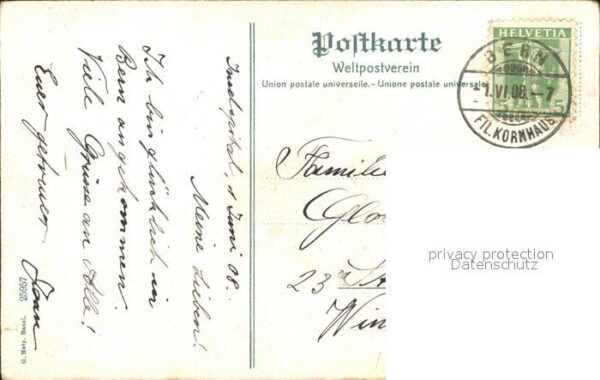 Postkarte
Weltpostverein
Union postale universelle. - Unione postale universale
HELVETIA
5
BERN
1.VI.08.-7
FIL.KORNHAUS
Inselspital, 1 Juni 08.
Meine Lieben!
Ich bin glücklich in
Bern angekommen.
Viele Grüsse an Alle!
Euer getreuer
Familie
23
Win
privacy protection
Datenschutz
G. Metz, Basel.
25957